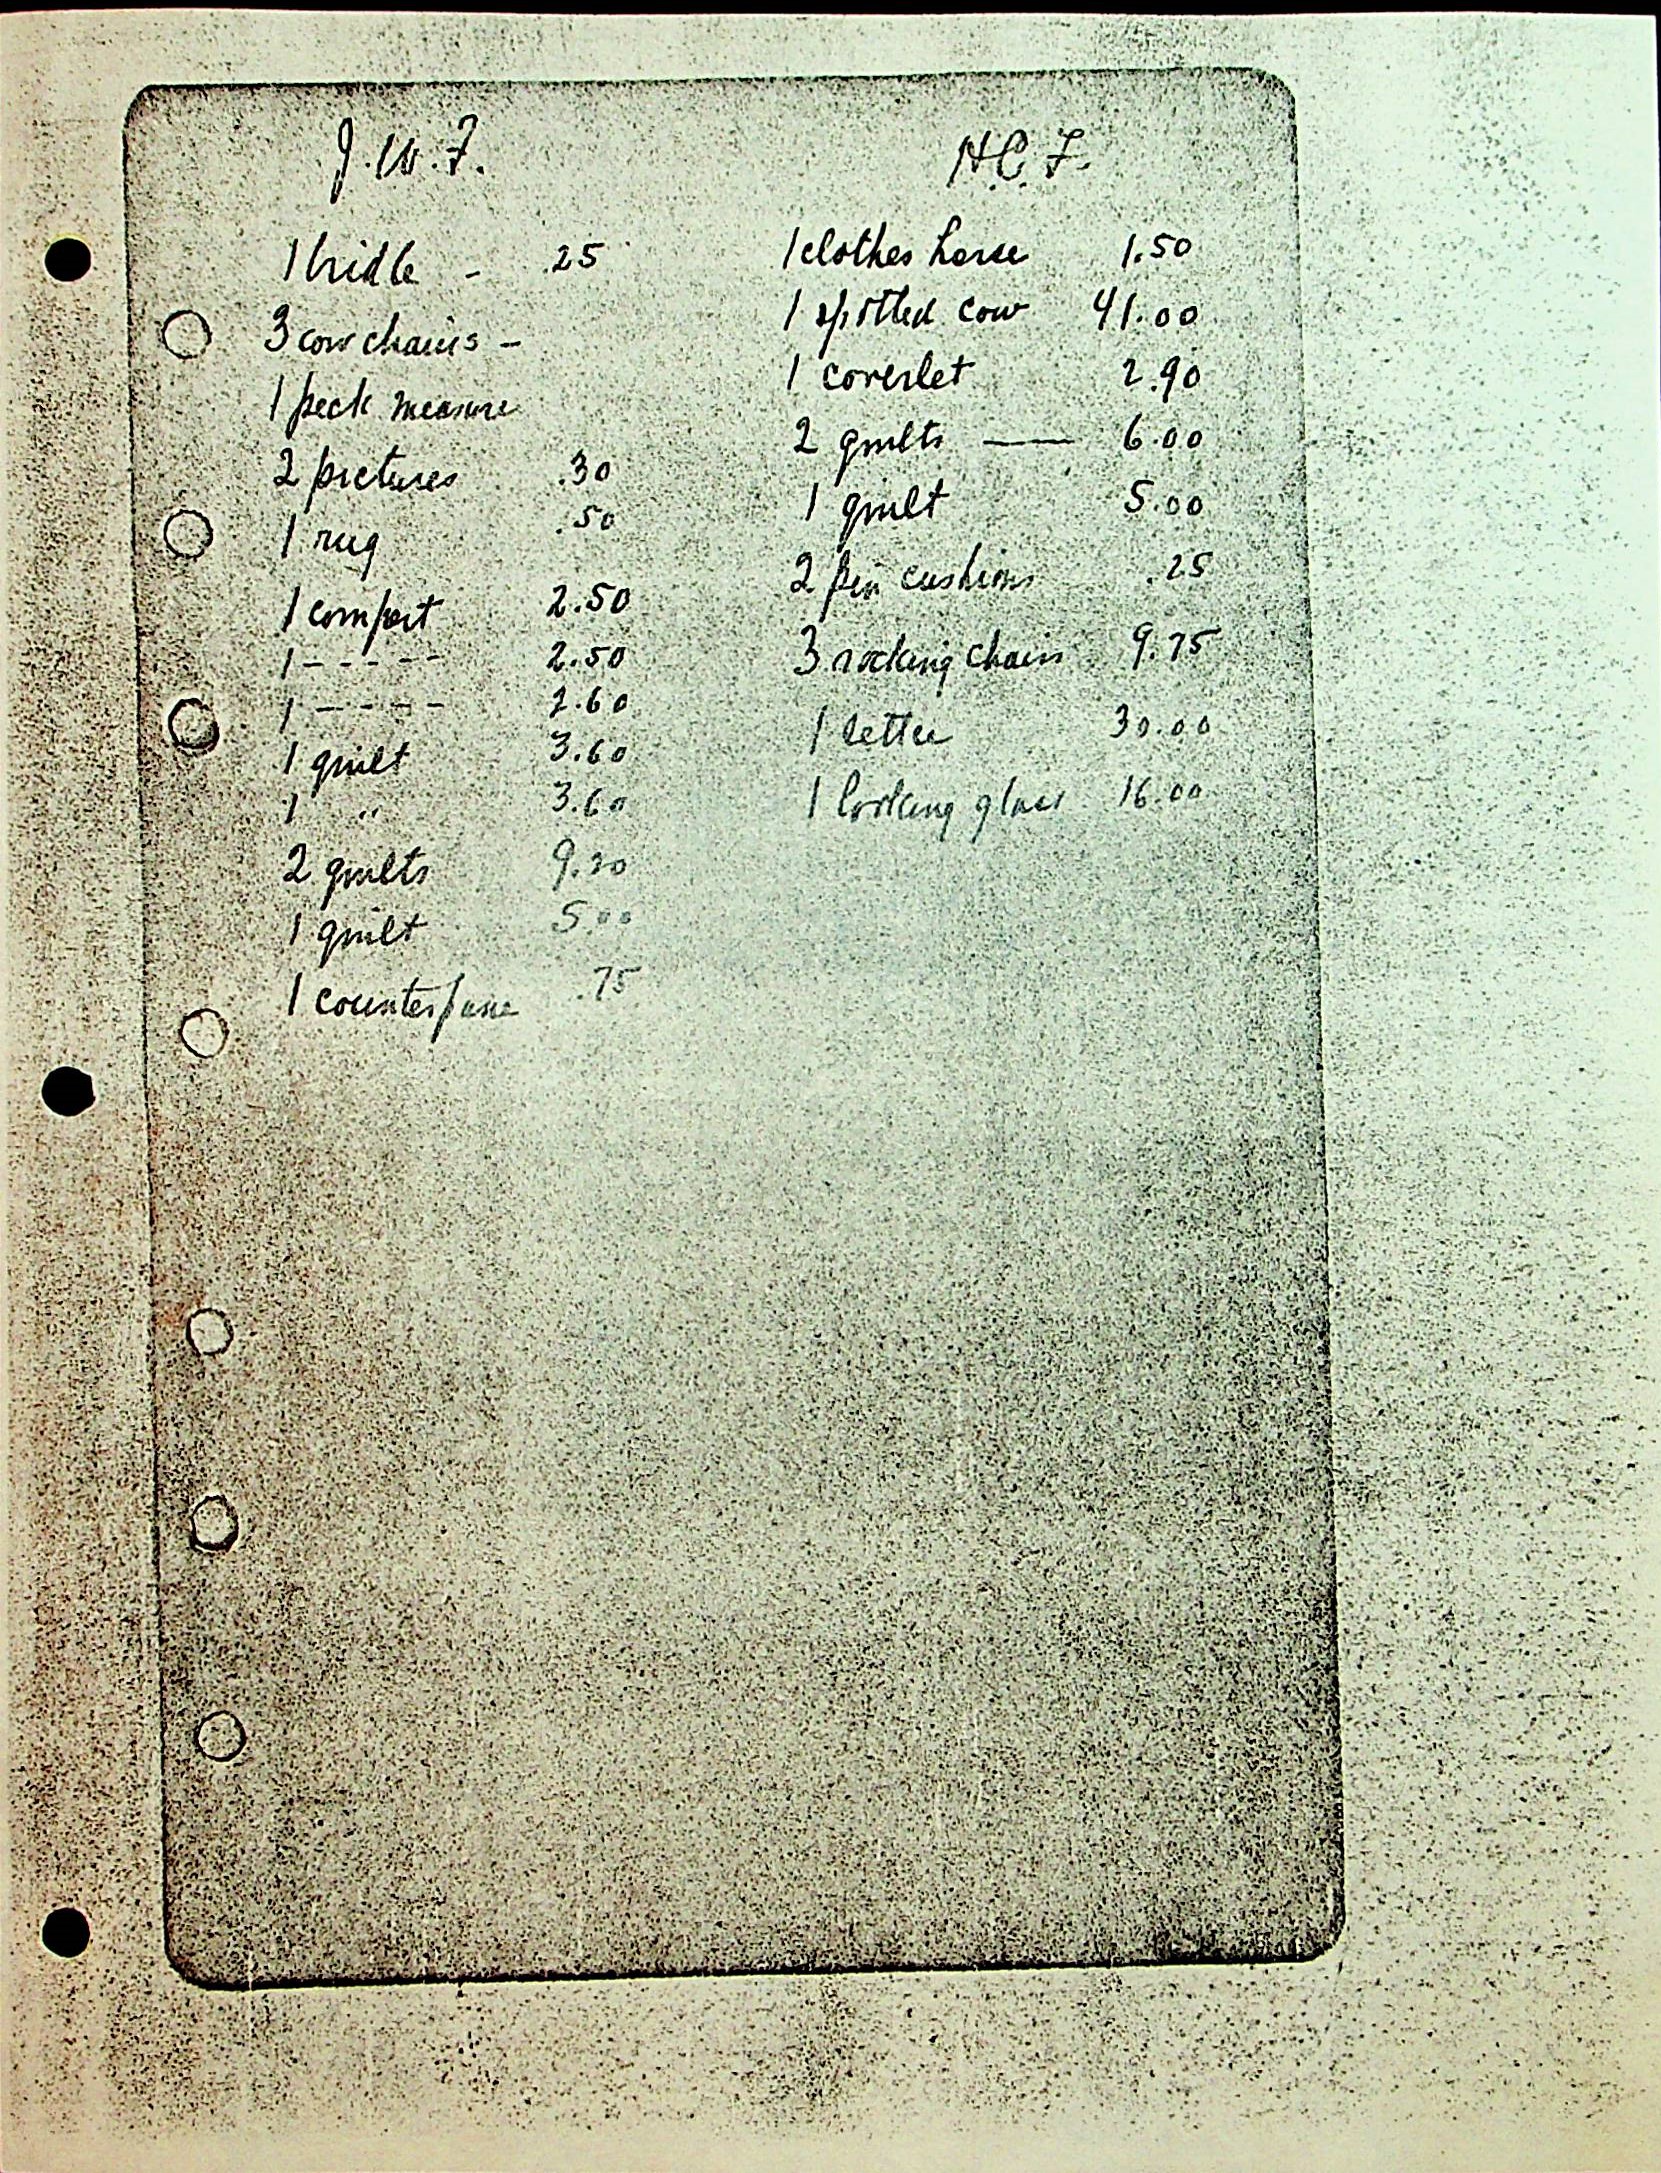 J.W.F.
1 bridle - .25
3 cow chains -
1 peck measure
2 pictures .30
1 rug .50
1 comfort 2.50
1 - - - - - 2.50
1 - - - - - 2.60
1 quilt 3.60
1 " 3.60
2 quilts 9.20
1 quilt 5.00
1 counterpane .75
H.C.F.
1 clothes horse 1.50
1 spotted cow 41.00
1 coverlet 2.90
2 quilts —— 6.00
1 quilt 5.00
2 pin cushions .25
3 rocking chairs 9.75
1 settee 30.00
1 looking glass 16.00